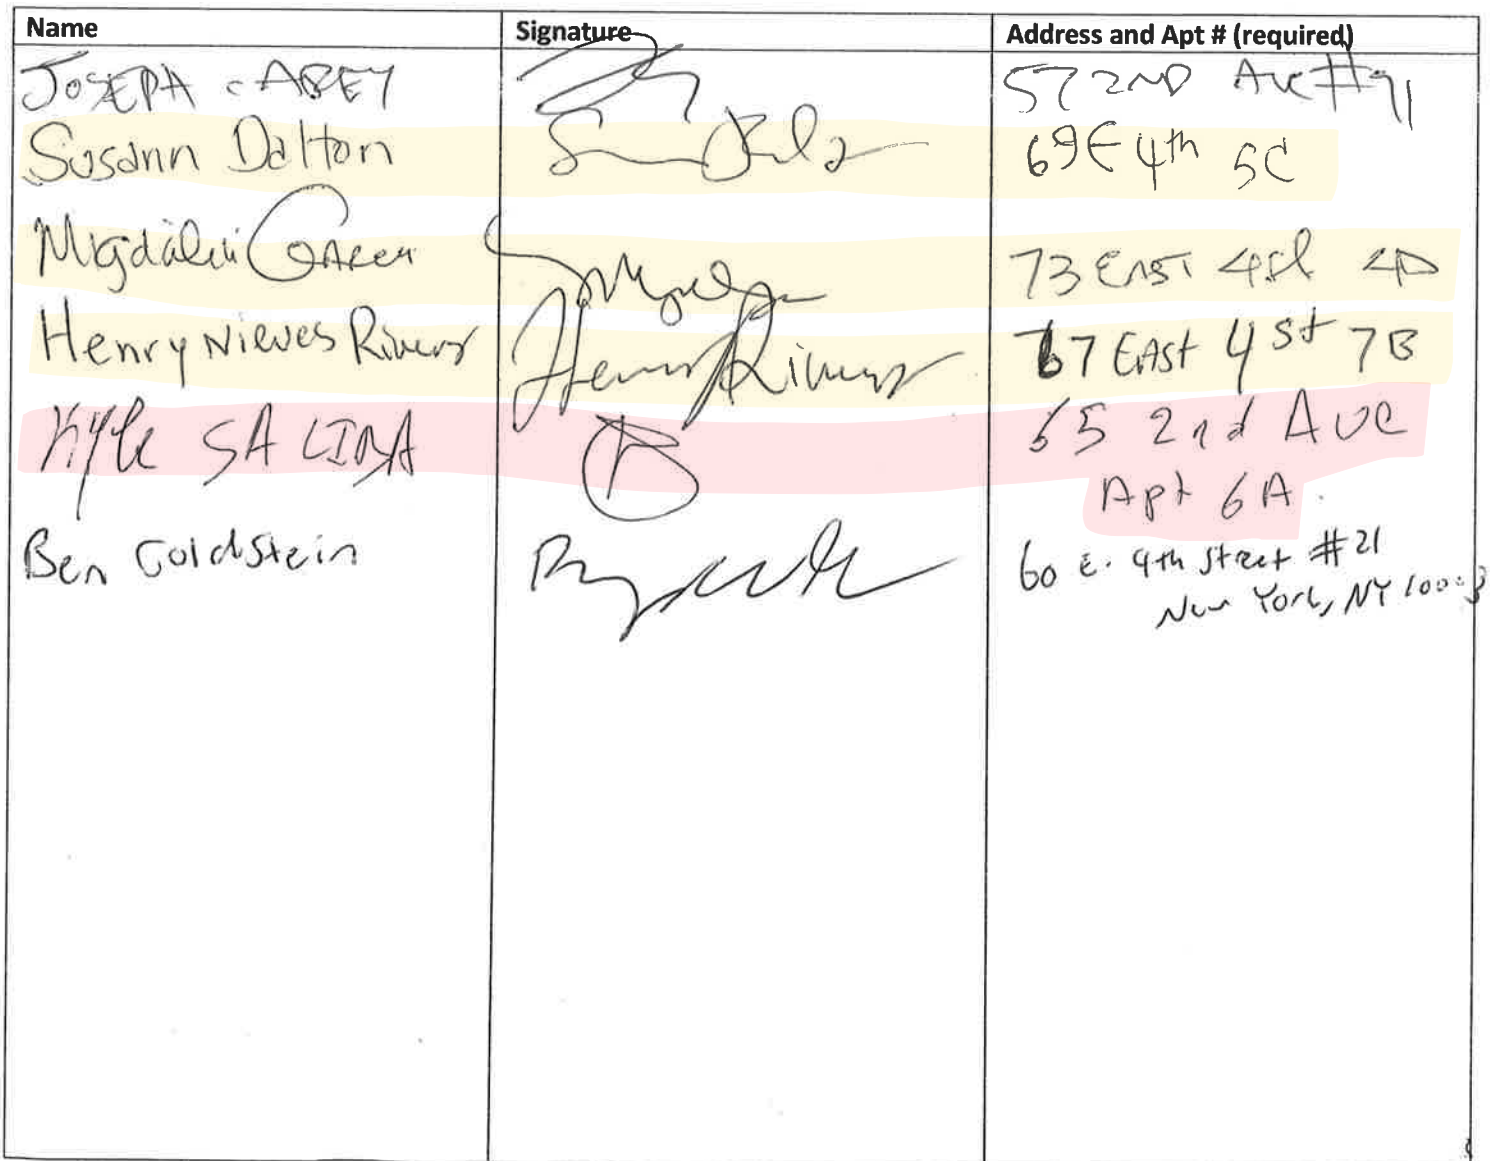 Name Signature Address and Apt # (required)
JOSEPH CABEY 57 2ND Ave #91
Susann Dalton 69 E 4th 5C
Migdalia Garcia 73 EAST 4St 4D
Henry Nieves Rivera Henry Rivera 67 EAst 4 st 7B
Kyle SALIBA 65 2nd Ave
Apt 6A.
Ben Goldstein 60 E. 4th Street #21
New York, NY 10003